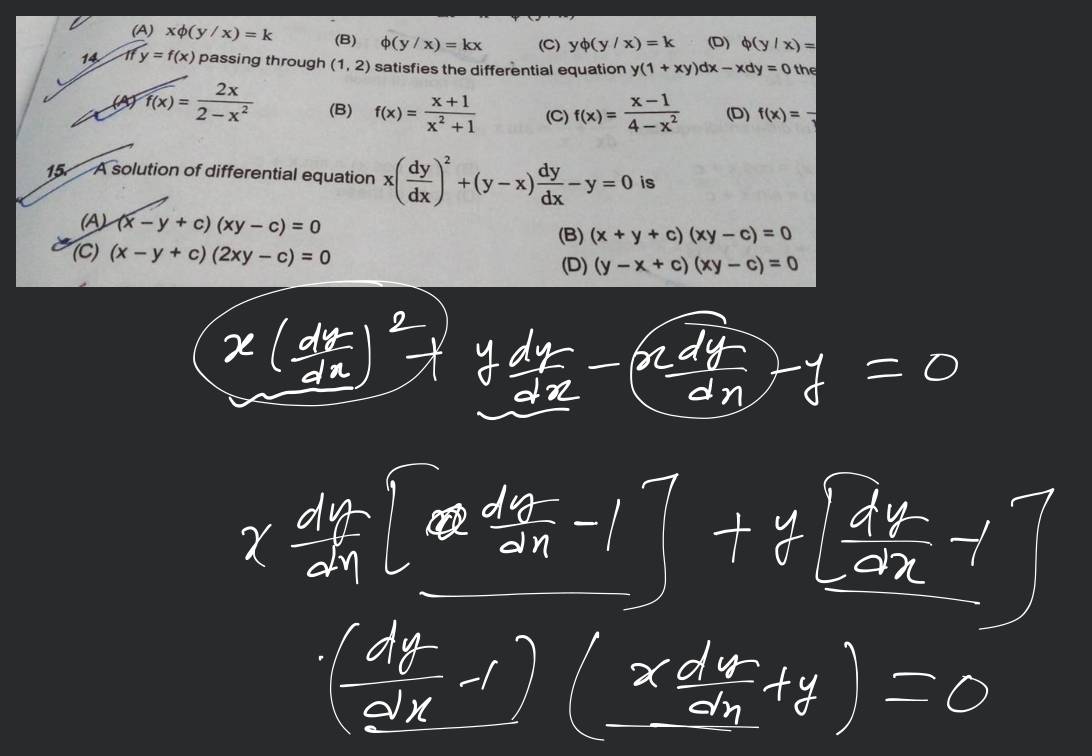 (A) xϕ(y / x) = k (B) ϕ(y / x) = kx (C) yϕ(y / x) = k (D) ϕ(y / x) =
14. If y = f(x) passing through (1, 2) satisfies the differential equation y(1 + xy)dx – xdy = 0 the
(A) f(x) = 2x / (2 – x²) (B) f(x) = (x + 1) / (x² + 1) (C) f(x) = (x – 1) / (4 – x²) (D) f(x) =
15. A solution of differential equation x(dy/dx)² + (y – x) dy/dx – y = 0 is
(A) (x – y + c) (xy – c) = 0 (B) (x + y + c) (xy – c) = 0
(C) (x – y + c) (2xy – c) = 0 (D) (y – x + c) (xy – c) = 0
x (dy/dx)² + y dy/dx – x dy/dx – y = 0
x dy/dx [dy/dx – 1] + y [dy/dx – 1]
(dy/dx – 1) (x dy/dx + y) = 0